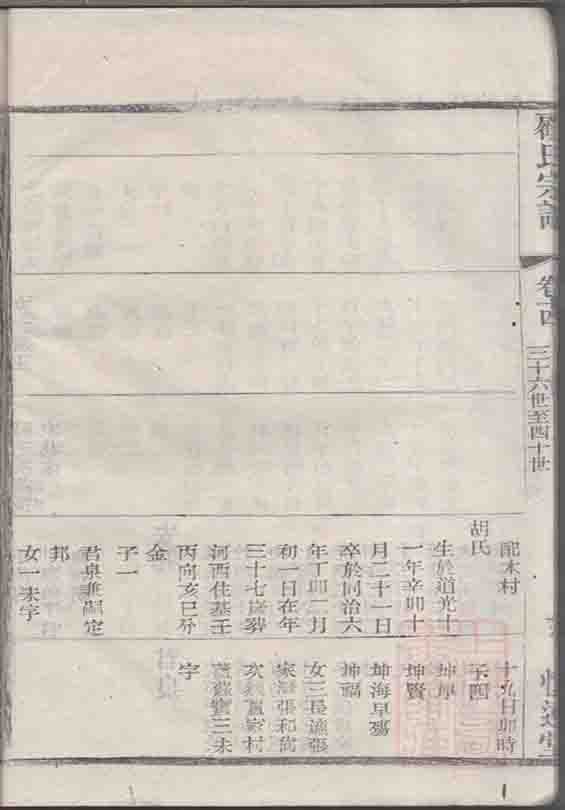 氏宗譜
卷十四
三十六世至四十世
配木村
胡氏
生於道光十
一年辛卯十
月二十一日
卒於同治六
年丁卯二月
初一日在年
三十七歲葬
河西住基壬
丙向亥巳分
金
子一
君泉誰嗣定
邦
女一未字
十九日卯時
子四
坤厚
坤賢
坤海早殤
坤福
女三長適張
家 張和尚
次 家村
三未
字